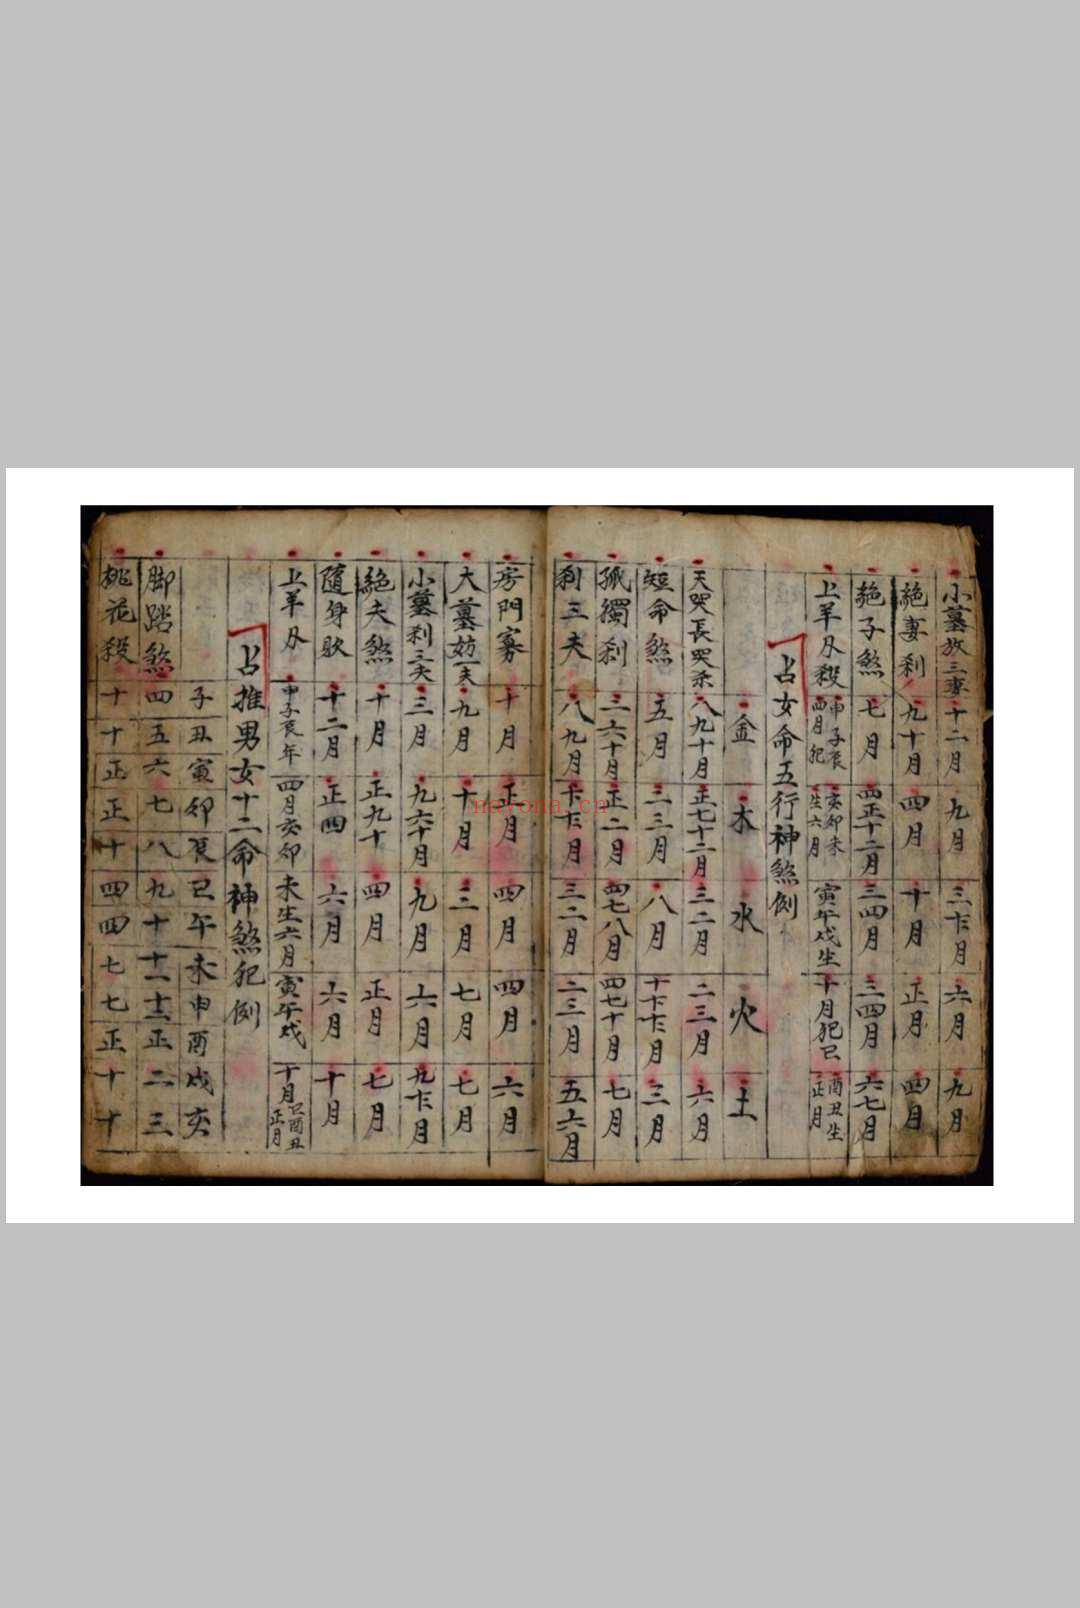 小墓放三妻 十二月 九月 三十二月 六月 九月
絕妻刹 九十月 四月 十月 正月 四月
絕子煞 七月 四正十二月 三四月 三四月 六七月
上羊刃殺 申子辰四月犯 亥卯未生六月 寅午戌生 十月犯巳 酉丑生正月
占女命五行神煞例
金 木 水 火 土
天哭長哭杀 八九十月 正七十二月 三二月 二三月 六月
短命煞 五月 三三月 八月 十十二月 三月
孤獨刹 三六十月 正二月 四七八月 四七十月 七月
刹三夫 八九月 十十二月 三二月 二三月 五六月
房門寡 十月 正月 四月 四月 六月
大墓妨一夫 九月 十月 三月 七月 七月
小墓刹三夫 三月 九六十月 九月 六月 九十二月
絕夫煞 十月 正九十 四月 正月 七月
隨身 十二月 正四 六月 六月 十月
上羊刃 申子辰年 四月亥卯 未生六月 寅午戌 十月巳酉丑正月
占推男女十二命神煞犯例
子丑寅卯辰巳午未申酉戌亥
脚踏煞 四五六七八九十十一十二正二三
桃花殺 十十正正十四四七七正十十
nayona.cn